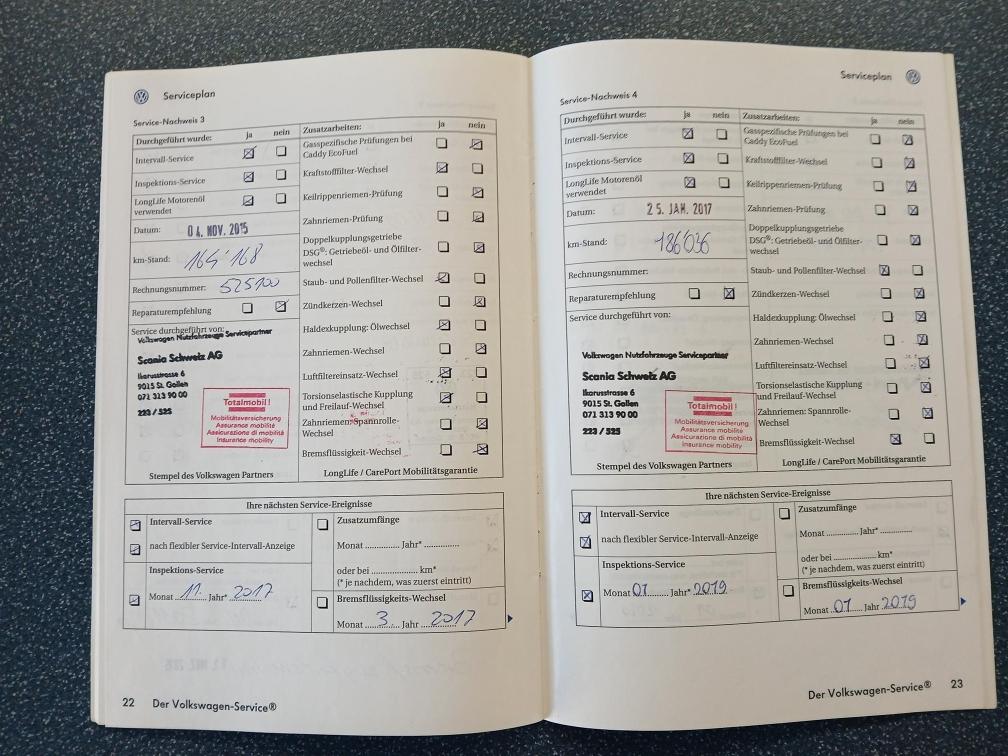 Serviceplan
Service-Nachweis 3
Durchgeführt wurde: ja nein
Intervall-Service
Inspektions-Service
LongLife Motorenöl
verwendet
Datum: 04. NOV. 2015
km-Stand: 164'168
Rechnungsnummer: 525100
Reparaturempfehlung
Service durchgeführt von:
Volkswagen Nutzfahrzeuge Servicepartner
Scania Schweiz AG
Ikarusstrasse 6
9015 St. Gallen
071 313 90 00
223 / 525
Totalmobil!
Mobilitätsversicherung
Assurance mobilité
Assicurazione di mobilità
Insurance mobility
Stempel des Volkswagen Partners
Zusatzarbeiten: ja nein
Gasspezifische Prüfungen bei
Caddy EcoFuel
Kraftstofffilter-Wechsel
Keilrippenriemen-Prüfung
Zahnriemen-Prüfung
Doppelkupplungsgetriebe
DSG®: Getriebeöl- und Ölfilter-
wechsel
Staub- und Pollenfilter-Wechsel
Zündkerzen-Wechsel
Haldexkupplung: Ölwechsel
Zahnriemen-Wechsel
Luftfiltereinsatz-Wechsel
Torsionselastische Kupplung
und Freilauf-Wechsel
Zahnriemen: Spannrolle-
Wechsel
Bremsflüssigkeit-Wechsel
LongLife / CarePort Mobilitätsgarantie
Ihre nächsten Service-Ereignisse
Intervall-Service
nach flexibler Service-Intervall-Anzeige
Inspektions-Service
Monat 11. Jahr* 2017
Zusatzumfänge
Monat .............. Jahr* ..............
oder bei .................. km*
(* je nachdem, was zuerst eintritt)
Bremsflüssigkeits-Wechsel
Monat 3. Jahr 2017
22 Der Volkswagen-Service®
Serviceplan
Service-Nachweis 4
Durchgeführt wurde: ja nein
Intervall-Service
Inspektions-Service
LongLife Motorenöl
verwendet
Datum: 25. JAN. 2017
km-Stand: 186'036
Rechnungsnummer:
Reparaturempfehlung
Service durchgeführt von:
Volkswagen Nutzfahrzeuge Servicepartner
Scania Schweiz AG
Ikarusstrasse 6
9015 St. Gallen
071 313 90 00
223 / 525
Totalmobil!
Mobilitätsversicherung
Assurance mobilité
Assicurazione di mobilità
Insurance mobility
Stempel des Volkswagen Partners
Zusatzarbeiten: ja nein
Gasspezifische Prüfungen bei
Caddy EcoFuel
Kraftstofffilter-Wechsel
Keilrippenriemen-Prüfung
Zahnriemen-Prüfung
Doppelkupplungsgetriebe
DSG®: Getriebeöl- und Ölfilter-
wechsel
Staub- und Pollenfilter-Wechsel
Zündkerzen-Wechsel
Haldexkupplung: Ölwechsel
Zahnriemen-Wechsel
Luftfiltereinsatz-Wechsel
Torsionselastische Kupplung
und Freilauf-Wechsel
Zahnriemen: Spannrolle-
Wechsel
Bremsflüssigkeit-Wechsel
LongLife / CarePort Mobilitätsgarantie
Ihre nächsten Service-Ereignisse
Intervall-Service
nach flexibler Service-Intervall-Anzeige
Inspektions-Service
Monat 01 Jahr* 2019
Zusatzumfänge
Monat .............. Jahr* ..............
oder bei .................. km*
(* je nachdem, was zuerst eintritt)
Bremsflüssigkeits-Wechsel
Monat 01 Jahr 2019
Der Volkswagen-Service® 23